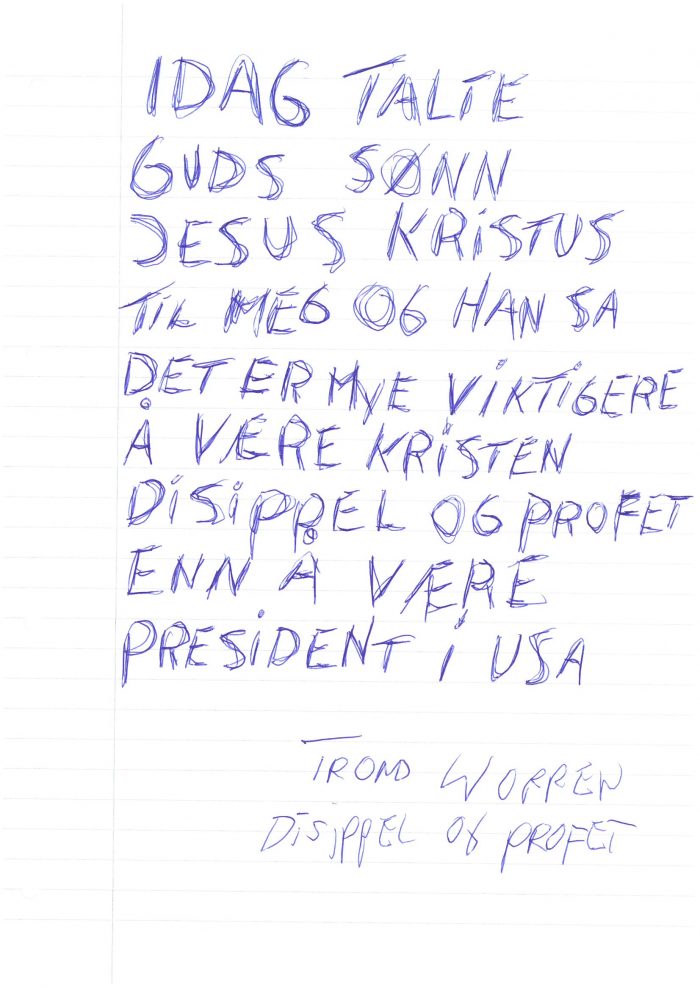 IDAG TALTE
GUDS SØNN
JESUS KRiSTUS
TiL MEG OG HAN SA
DET ER MYE ViKTiGERE
Å VÆRE KRiSTEN
DiSiPPEL OG PROFET
ENN Å VÆRE
PRESiDENT i USA
TROND WORREN
DiSiPPEL OG PROFET